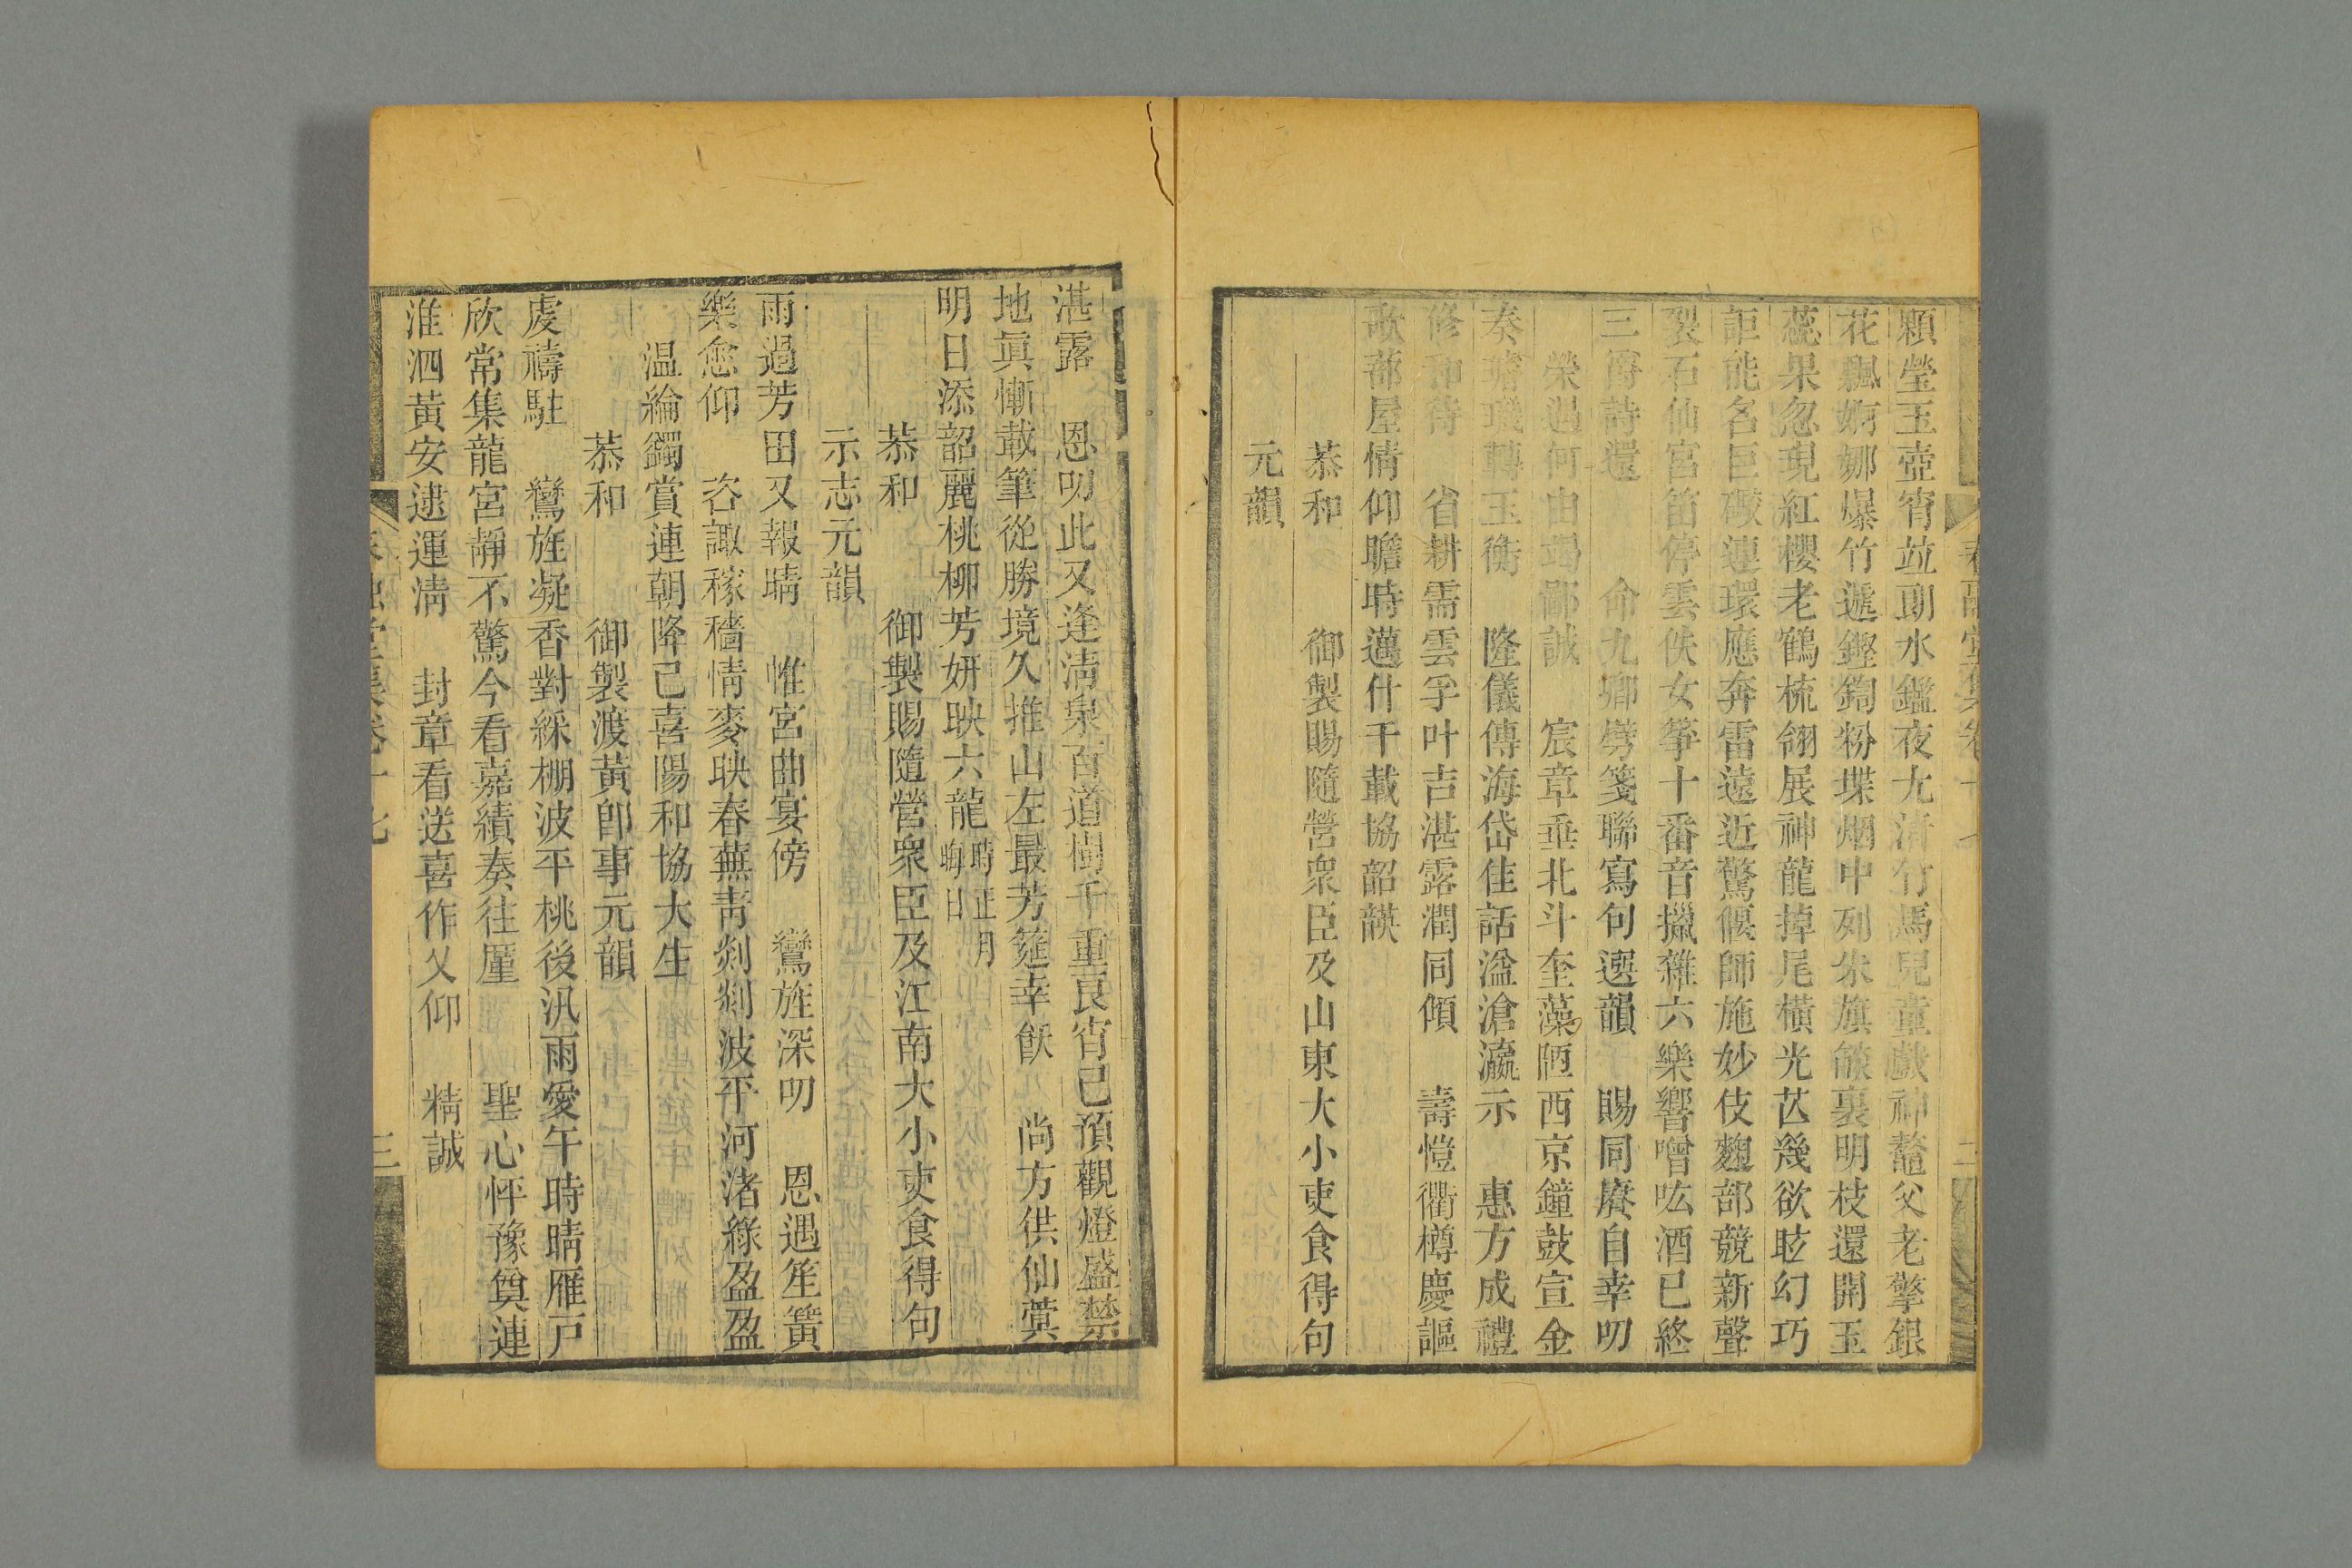 顆瑩玉壺宵竝朗水鑑夜尤清竹馬兒童戲神鼇父老擎銀
花飄婀娜爆竹遞鏗鍧粉堞烟中列朱旗燄裏明枝還開玉
蕊果忽現紅櫻老鶴梳翎展神龍掉尾橫光芒幾欲眩幻巧
詎能名巨礮連環應奔雷遠近驚偃師施妙伎麴部競新聲
裂石仙宮笛停雲佚女箏十番音攂雜六樂響噌吰酒已終
三爵詩還　命九鄉劈箋聯寫句選韻　賜同賡自幸叨
榮遇何由竭鄙誠　宸章垂北斗奎藻陋西京鐘鼓宣金
奏璿璣轉玉衡　隆儀傳海岱佳話溢滄瀛示　惠方成禮
修和待　省耕需雲孚叶吉湛露潤同傾　壽愷衢樽慶謳
歌蔀屋情仰瞻時邁什千載協韶韺
恭和　御製賜隨營衆臣及山東大小吏食得句
元韻
春融堂集卷十七　二
湛露　恩叨此又逢淸泉百道樹千重良宵已預觀燈盛禁
地眞慚載筆從勝境久推山左最芳筵幸飫　尚方供仙蓂
明日添韶麗桃柳芳妍映六龍時正月晦日
恭和　御製賜隨營衆臣及江南大小吏食得句
示志元韻
雨過芳田又報晴　惟宮曲宴傍　鸞旌深叨　恩遇笙簧
樂愈仰　咨諏稼穡情麥映春蕪靑剡剡波平河渚綠盈盈
温綸鐲賞連朝降已喜陽和協大生
恭和　御製渡黃卽事元韻
虔禱駐　鸞旌凝香對綵棚波平桃後汛雨愛午時晴雁戸
欣常集龍宮靜不驚今看嘉績奏往厪　聖心怦豫奠連
淮泗黃安逮運淸　封章看送喜作乂仰　精誠
三